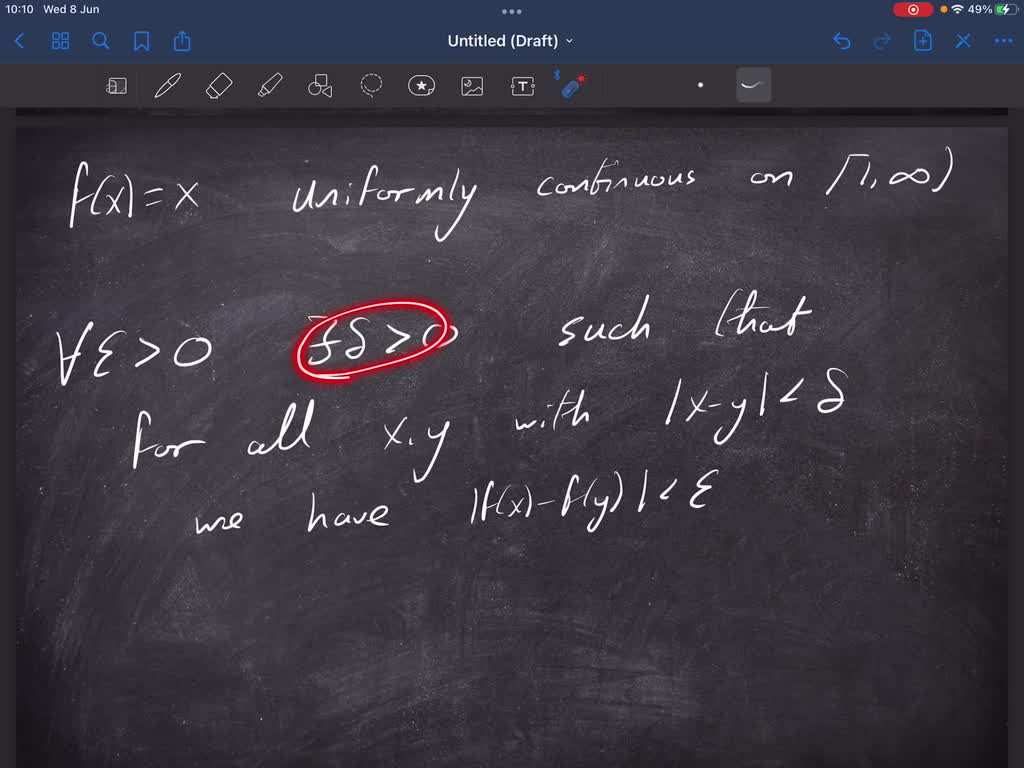 10:10 Wed 8 Jun 49%
Untitled (Draft)
f(x) = x uniformly continuous on [1, ∞)
∀ε > 0 ∃δ > 0 such that
for all x, y with |x-y| < δ
we have |f(x) - f(y)| < ε